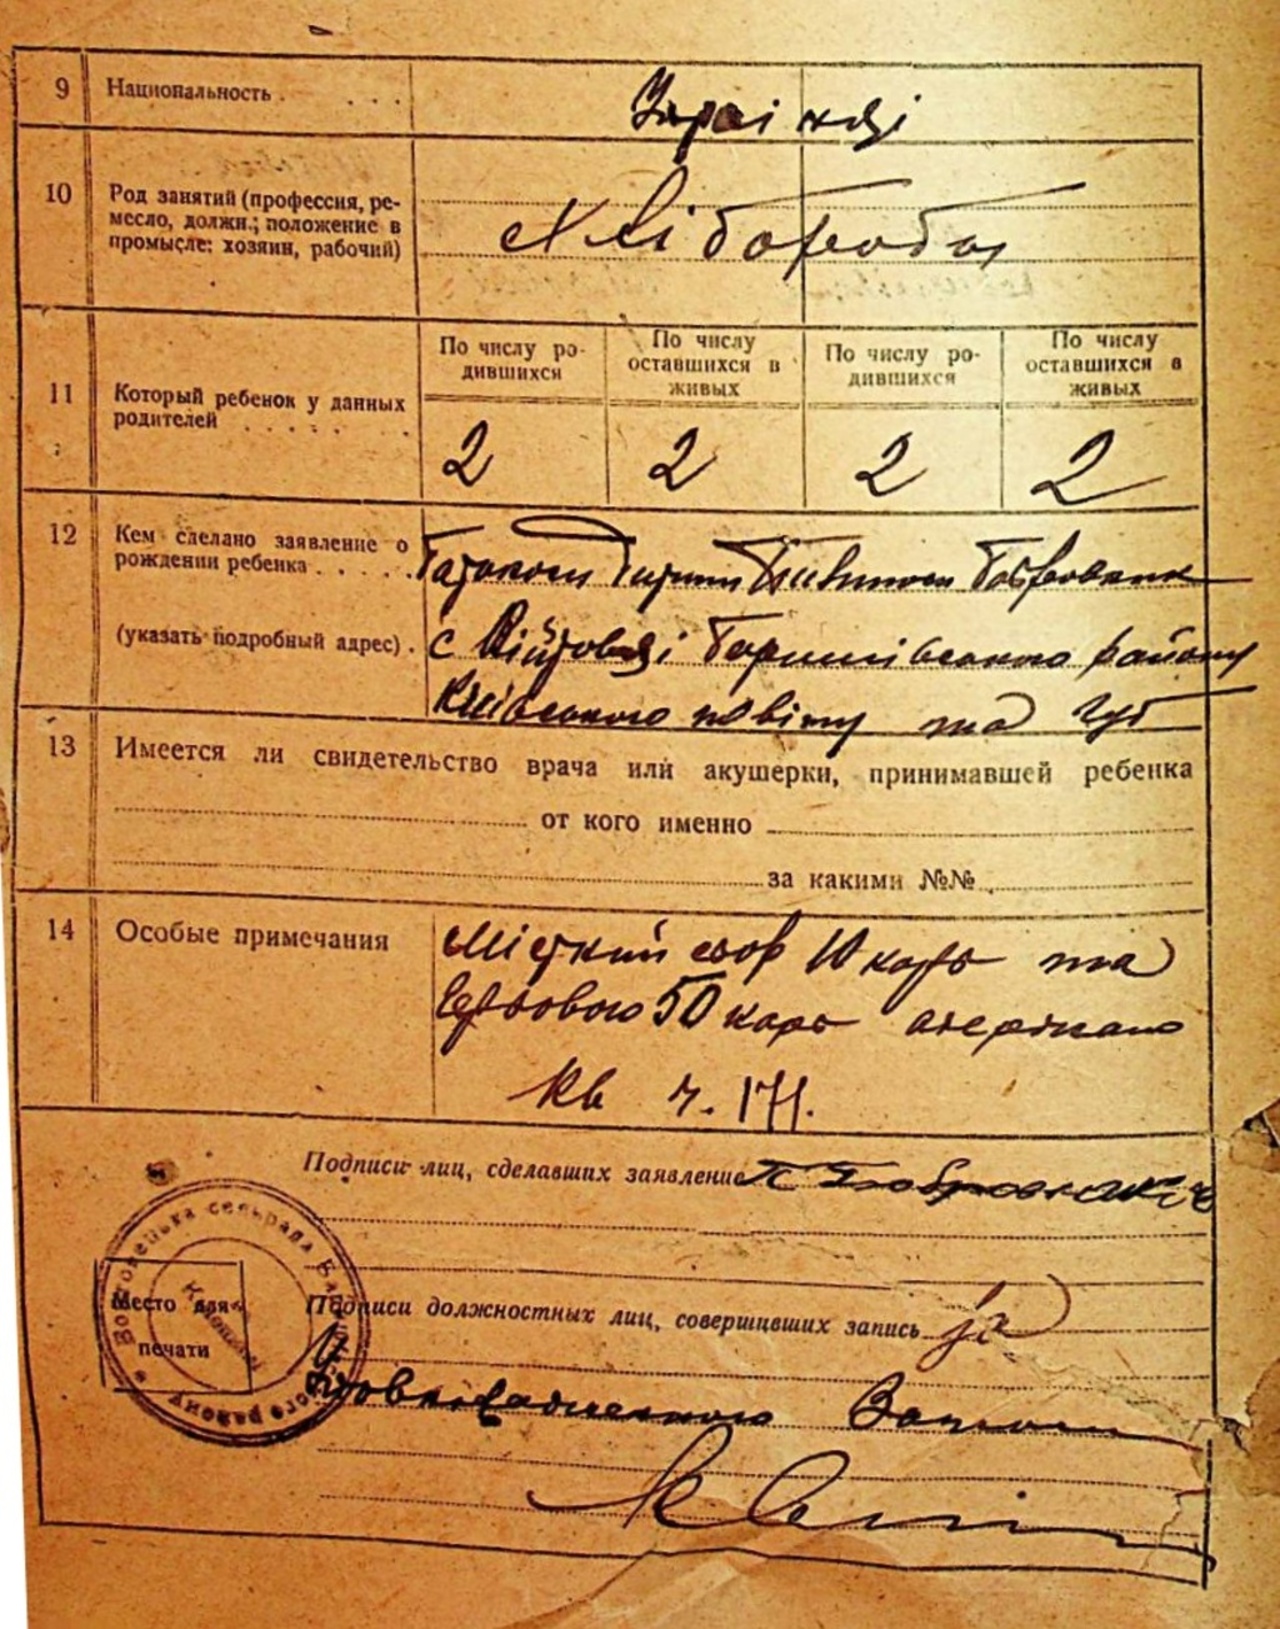 9 Национальность . . . .
Українці
10 Род занятий (профессия, ре-
месло, должн.; положение в
промысле: хозяин, рабочий)
Хлібороби
11 Который ребенок у данных
родителей . . . . . .
По числу ро-
дившихся
По числу
оставшихся в
живых
По числу ро-
дившихся
По числу
оставшихся в
живых
2 2 2 2
12 Кем сделано заявление о
рождении ребенка . . . . .
(указать подробный адрес) .
Батьком Бобровник
с Війтовці району
Київського повіту та губ
13 Имеется ли свидетельство врача или акушерки, принимавшей ребенка
от кого именно
за какими №№
14 Особые примечания
Міський сбор 10 карб та
50 карб
Кв ч. 171.
Подписи лиц, сделавших заявление
Место для
печати
Подписи должностных лиц, совершивших запись за
сельрада
району